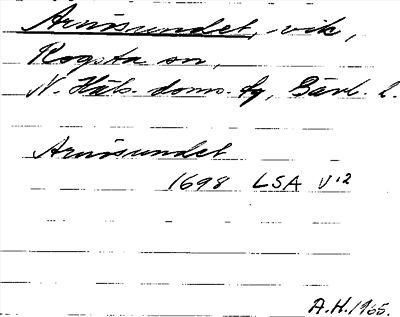 Arnösundet, vik,
Rogsta sn,
N. Häls. doms. fg, Gävl. l.
Arnösundet
1698 LSA V:2
A.H. 1965.